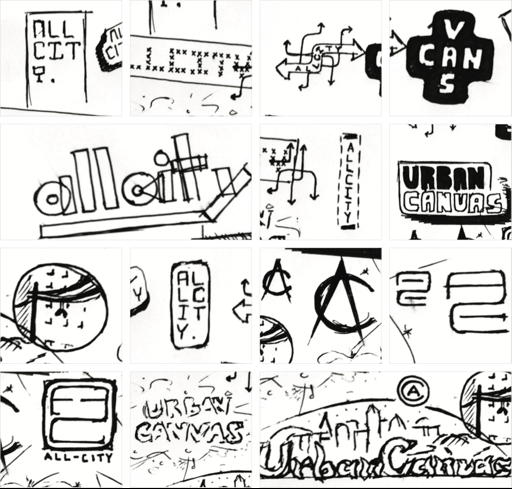 ALL
CIT
Y.
V
CAN
S
allcity
ALLCITY
URBAN
CANVAS
AL
LC
IT
Y.
ALL-CITY
URBAN
CANVAS
A
Urban Canvas